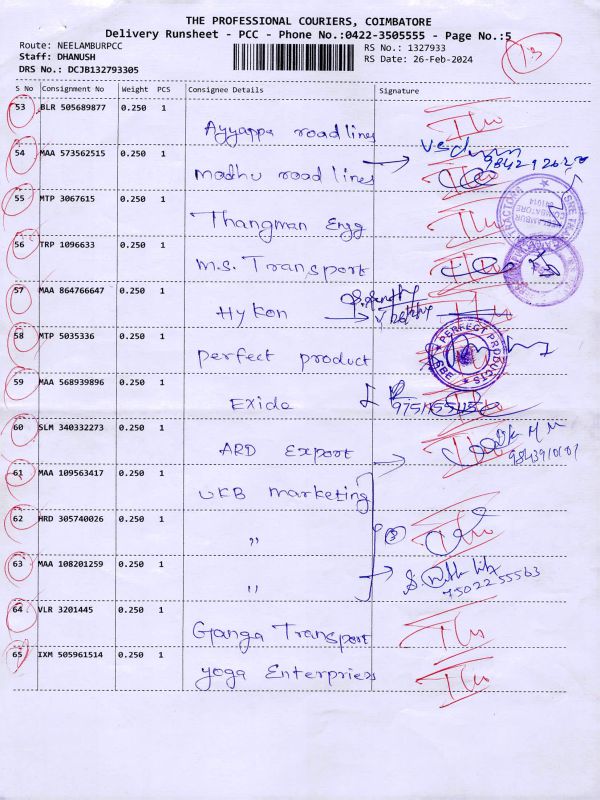 THE PROFESSIONAL COURIERS, COIMBATORE
Delivery Runsheet - PCC - Phone No.:0422-3505555 - Page No.:5
Route: NEELAMBURPCC
RS No.: 1327933
Staff: DHANUSH
RS Date: 26-Feb-2024
DRS No.: DCJB132793305
13
S No Consignment No Weight PCS Consignee Details Signature
53 BLR 505689877 0.250 1
Ayyappa roadlines
54 MAA 573562515 0.250 1
Madhu roadlines
55 MTP 3067615 0.250 1
Thangman Engg
56 TRP 1096633 0.250 1
M.S. Transport
57 MAA 864766647 0.250 1
Hykon
58 MTP 5035336 0.250 1
perfect product
PERFECT PRODUCTS
59 MAA 568939896 0.250 1
Exide
60 SLM 340332273 0.250 1
ARD Export
9843910101
61 MAA 109563417 0.250 1
UKB Marketing
62 HRD 305740026 0.250 1
"
3
63 MAA 108201259 0.250 1
"
7502255563
64 VLR 3201445 0.250 1
Ganga Transport
65 IXM 505961514 0.250 1
yoga Enterpries